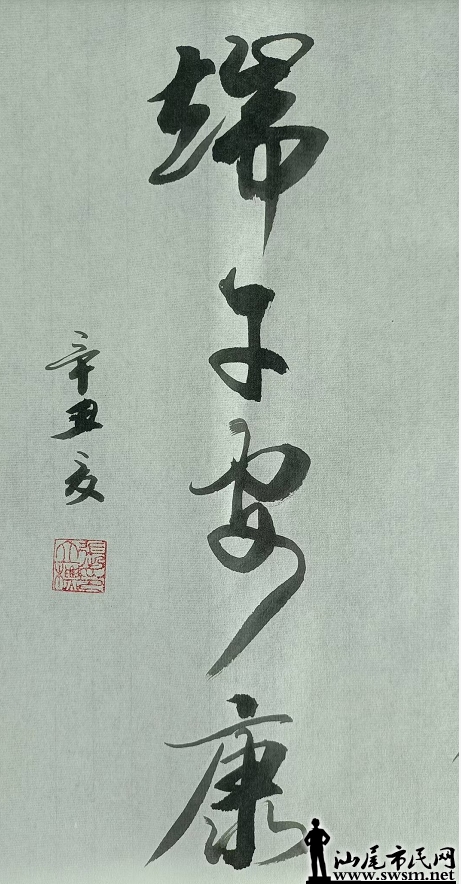 端午安康
辛丑夏
汕尾市民网
www.swsm.net